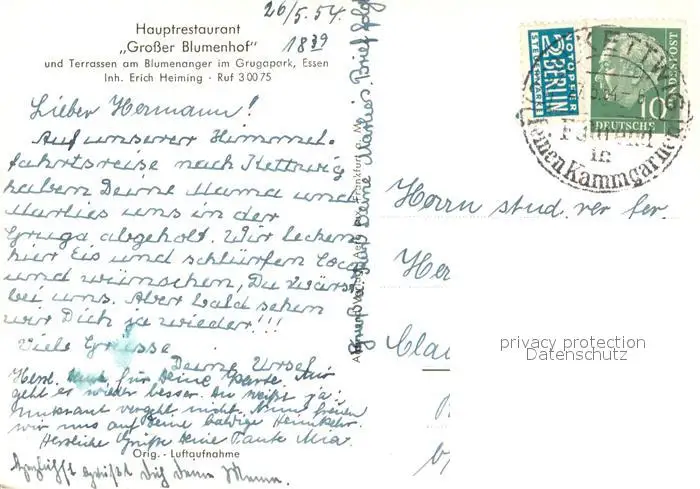 Hauptrestaurant
„Großer Blumenhof"
und Terrassen am Blumenanger im Grugapark, Essen
Inh. Erich Heiming · Ruf 3 00 75
26/5.54.
18
Lieber Hermann!
Auf unserer Himmel-
fahrtsreise nach Kettwig
haben Deine Mama und
Marlies uns in der
Gruga abgeholt. Wir lecken
hier Eis und schlürfen Coca
und wünschen, Du wärst
bei uns. Aber bald sehen
wir Dich ja wieder!!!
Viele Grüsse
Deine Ursel
Herzl. Dank für Deine Karte. Mir
geht es wieder besser. Du weißt ja:
Unkraut vergeht nicht. Nun freuen
wir uns auf Deine baldige Heimkehr.
Herzliche Grüße Deine Tante Mia.
Orig. - Luftaufnahme
Herzlichst grüßt Dich Deine Mama.
Deine Marlies Brief folgt
Frankfurt a. M.
NOTOPFER
2 BERLIN
STEUERMARKE
BUNDESPOST
10
DEUTSCHE
KETTWIG
in
feinen Kammgarnen
Herrn stud. rer.
He
Cla
privacy protection
Datenschutz